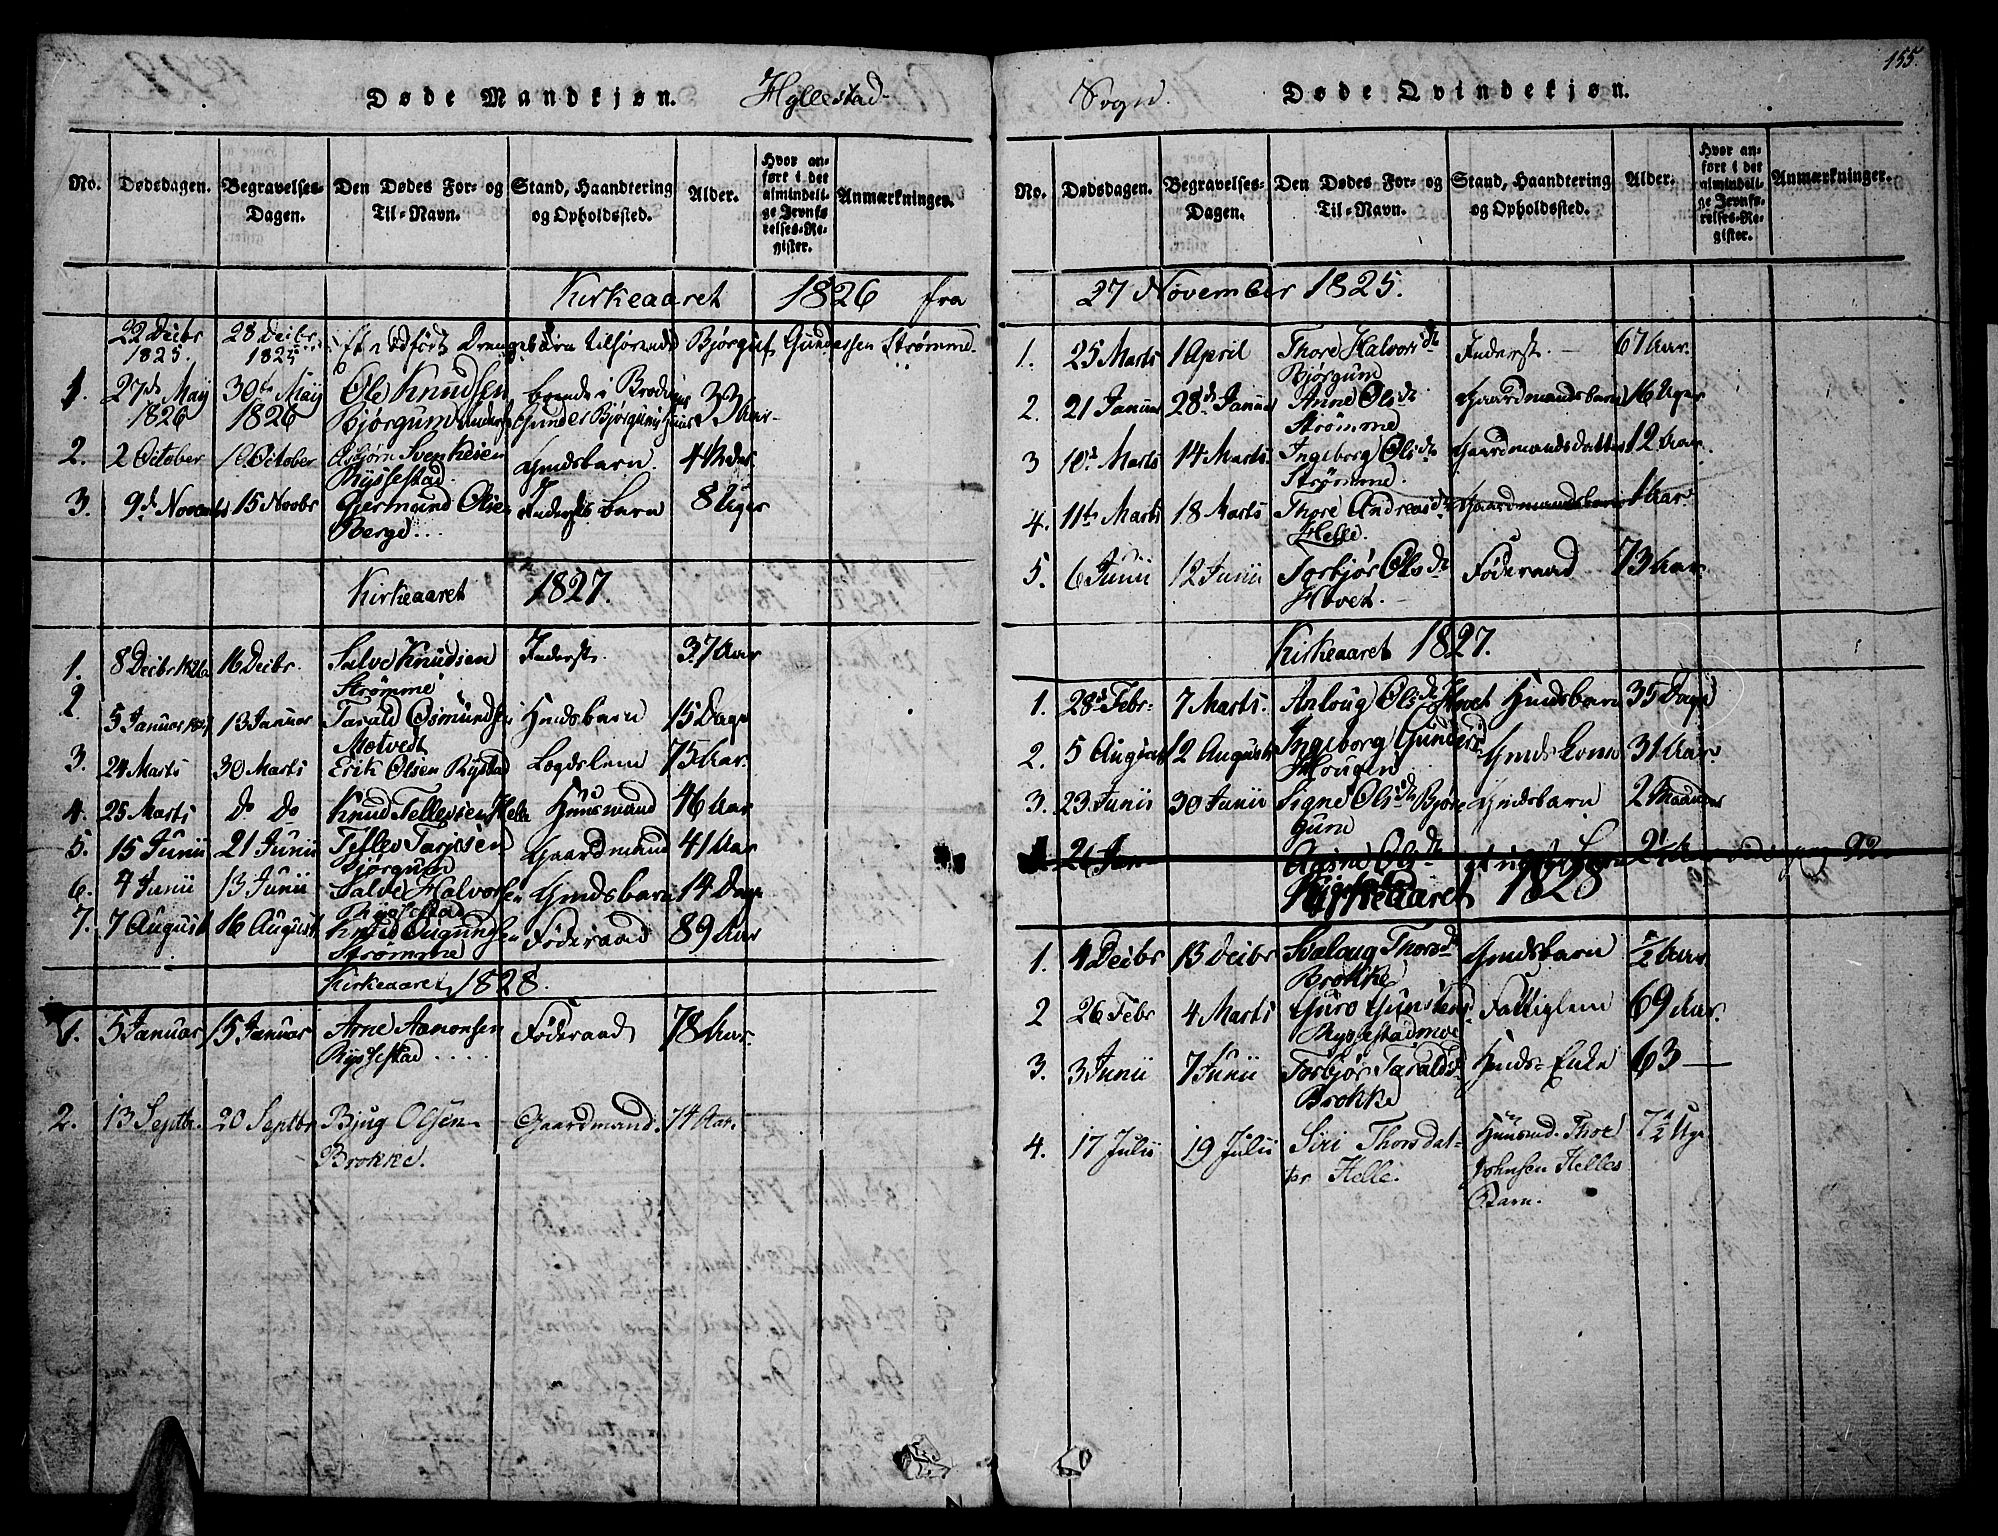 155.
Døde Mandkjøn. Hyllestad
No. Dødsdagen. Begravelses-Dagen. Den Dødes For- og Til-Navn. Stand, Haandtering og Opholdssted. Alder. Hvor anført i det almindelige Jevnførelses-Register. Anmærkninger.
Kirkeaaret 1826 fra
22 Decbr 1825. 28 Decbr. 1825 Et dødfødt Drengebarn tilhørende Bjørguf Gundersen Strømme.
1. 27de May 1826 30te May 1826 Ole Knudsen Bjørgum 33 Aar
2. 2 October 10 October Asbjørn Svenkesen Ryssestad Gmdsbarn. 4 Aar
3. 9de Novembr 15 Novbr Gjermund Olsen Berge... Inderstes barn 8 Uger
Kirkeaaret 1827.
1. 8 Decbr 1826 16 Decbr. Salve Knudsen Strømme Inderst. 37 Aar
2 5 Januar 1827 13 Januar Tarald Osmundsen Motvedt Hmdsbarn 15 Dage
3. 24 Marts 30 Marts Erik Olsen Rystad Lægdslem 75 Aar.
4. 25 Marts do do Knud Tellefsen Helle Huusmand 46 Aar
5. 15 Junii 21 Junii Tellev Tarjesen Bjørgum Gaardmand 41 Aar
6. 7 Junii 13 Junii Salve Halvorsen Ryssestad Gmdsbarn 14 Dage
7. 7 August 16 August Knud Augunsen Strømme Føderaad 89 Aar
Kirkeaaret 1828.
1. 5 Januar 15 Januar Arne Aamonsen Ryssestad.... Føderaad 78 Aar.
2. 13 Septbr. 20 Septbr Bjug Olsen Brokke. Gaardmand. 74 Aar.
Sogn. Døde Qvindekjøn.
No. Dødsdagen. Begravelses-Dagen. Den Dødes For- og Til-Navn. Stand, Haandtering og Opholdssted. Alder. Hvor anført i det almindelige Jevnførelses-Register. Anmærkninger.
27 November 1825.
1. 25 Marts 1 April Thore Halvorsdr Bjørgum Inderst. 67 Aar.
2. 21 Januar 28de Januar Anne Olsdr Strømme Gaardmandsbarn 16 Uger
3 10de Marts 14 Marts. Ingeborg Olsdr Strømme. Gaardmandsdatter 12 Aar
4. 11te Marts 18 Marts Thore Andreasdr Helle. Gaardmandsbarn 1 Aar
5. 6 Junii 12 Junii Torbjør Olsdr Hovet. Føderaad 73 Aar.
Kirkeaaret 1827.
1. 28de Febr. 7 Marts. Anloug Olsdr Hovet Hmdsbarn 35 Dage
2. 5 August 12 August Ingeborg Gundersdr Hougen Gmds Kone 31 Aar
3. 23 Junii 30 Junii Signe Olsdr Bjørgum Gmdsbarn 2 Maaneder
21 Jan Olsdr
Kirkeaaret 1828
1. 4 Decbr 13 Decbr Svaloug Thorsdr Brokke Gmdsbarn 1/2 Aar
2 26 Febr 4 Marts Guro Gunstensd. Ryssestadmoe Fattiglem 69 Aar.
3. 3 Junii 7 Junii Torbjør Taraldsd. Brokke Hmds-Enke 63 —
4. 17 Julii 19 Julii Siri Thorsdatter Helle. Huusmd. Thor Johnsen Helles Barn. 7 1/2 Uge